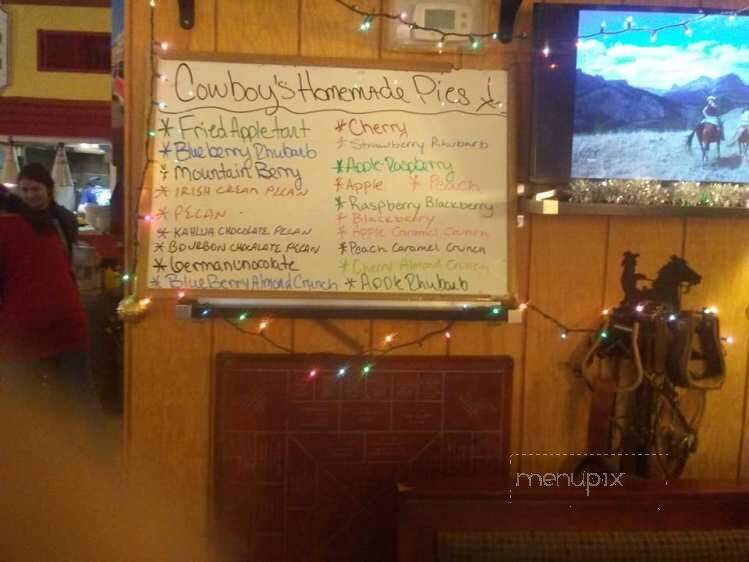 Cowboy's Homemade Pies
* Fried Apple tart
* Blueberry Rhubarb
* Mountain Berry
* IRISH CREAM PECAN
* PECAN
* KAHLUA CHOCOLATE PECAN
* BOURBON CHOCALATE PECAN
* German Chocolate
* BlueBerry Almond Crunch
* Cherry
* Strawberry Rhubarb
* Apple Raspberry
* Apple * Peach
* Raspberry Blackberry
* Blackberry
* Apple Caramel Crunch
* Peach Caramel Crunch
* Cherry Almond Crunch
* Apple Rhubarb
menupix